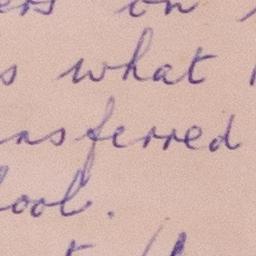 ers on
s what
nsferred
ool.